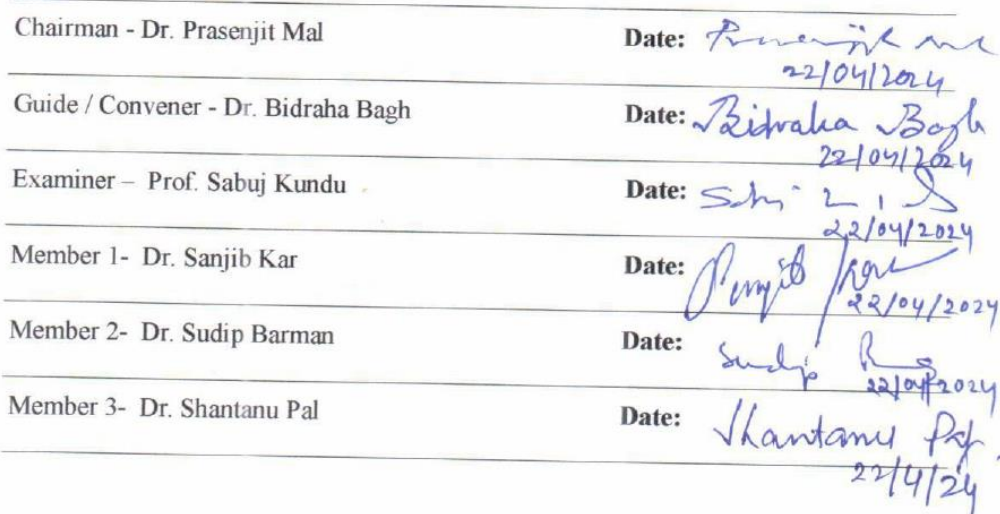 Chairman - Dr. Prasenjit Mal Date:
22/04/2024
Guide / Convener - Dr. Bidraha Bagh Date: Bidraha Bagh
22/04/2024
Examiner – Prof. Sabuj Kundu Date:
22/04/2024
Member 1- Dr. Sanjib Kar Date:
22/04/2024
Member 2- Dr. Sudip Barman Date: Sudip
22/04/2024
Member 3- Dr. Shantanu Pal Date: Shantanu Pal
22/4/24